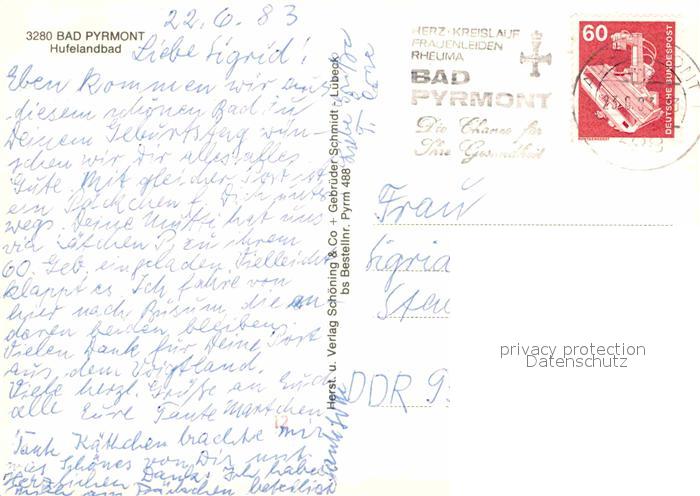 22.6.83
3280 BAD PYRMONT
Hufelandbad
Liebe Sigrid!
Eben kommen wir aus
diesem schönen Bad, zu
Deinem Geburtstag wün-
schen wir Dir alles, alles
Gute. Mit gleicher Post ist
ein Päckchen f. Dich unter-
wegs. Deine Mutti hat uns
via Kätchen P. zu ihrem
60. Geb. eingeladen. Vielleicht
klappt es. Ich fahre von
hier nach Büsum, die an
deren beiden bleiben.
Vielen Dank für Deine Post
aus dem Voigtland.
Viele herzl. Grüße an Euch
alle Eure Tante Martchen
Tante Käthchen brachte mir
was Schönes von Dir mit
Herzlichen Dank. Ich habe
mich am Päckchen beteiligt
Liebe Grüße
T.
Herst. u. Verlag Schöning & Co + Gebrüder Schmidt - Lübeck
bs Bestellnr. Pyrm 488
HERZ-KREISLAUF
FRAUENLEIDEN
RHEUMA
BAD
PYRMONT
Die Chance für
Ihre Gesundheit
60
DEUTSCHE BUNDESPOST
Frau
Sigrid
DDR 9
privacy protection
Datenschutz